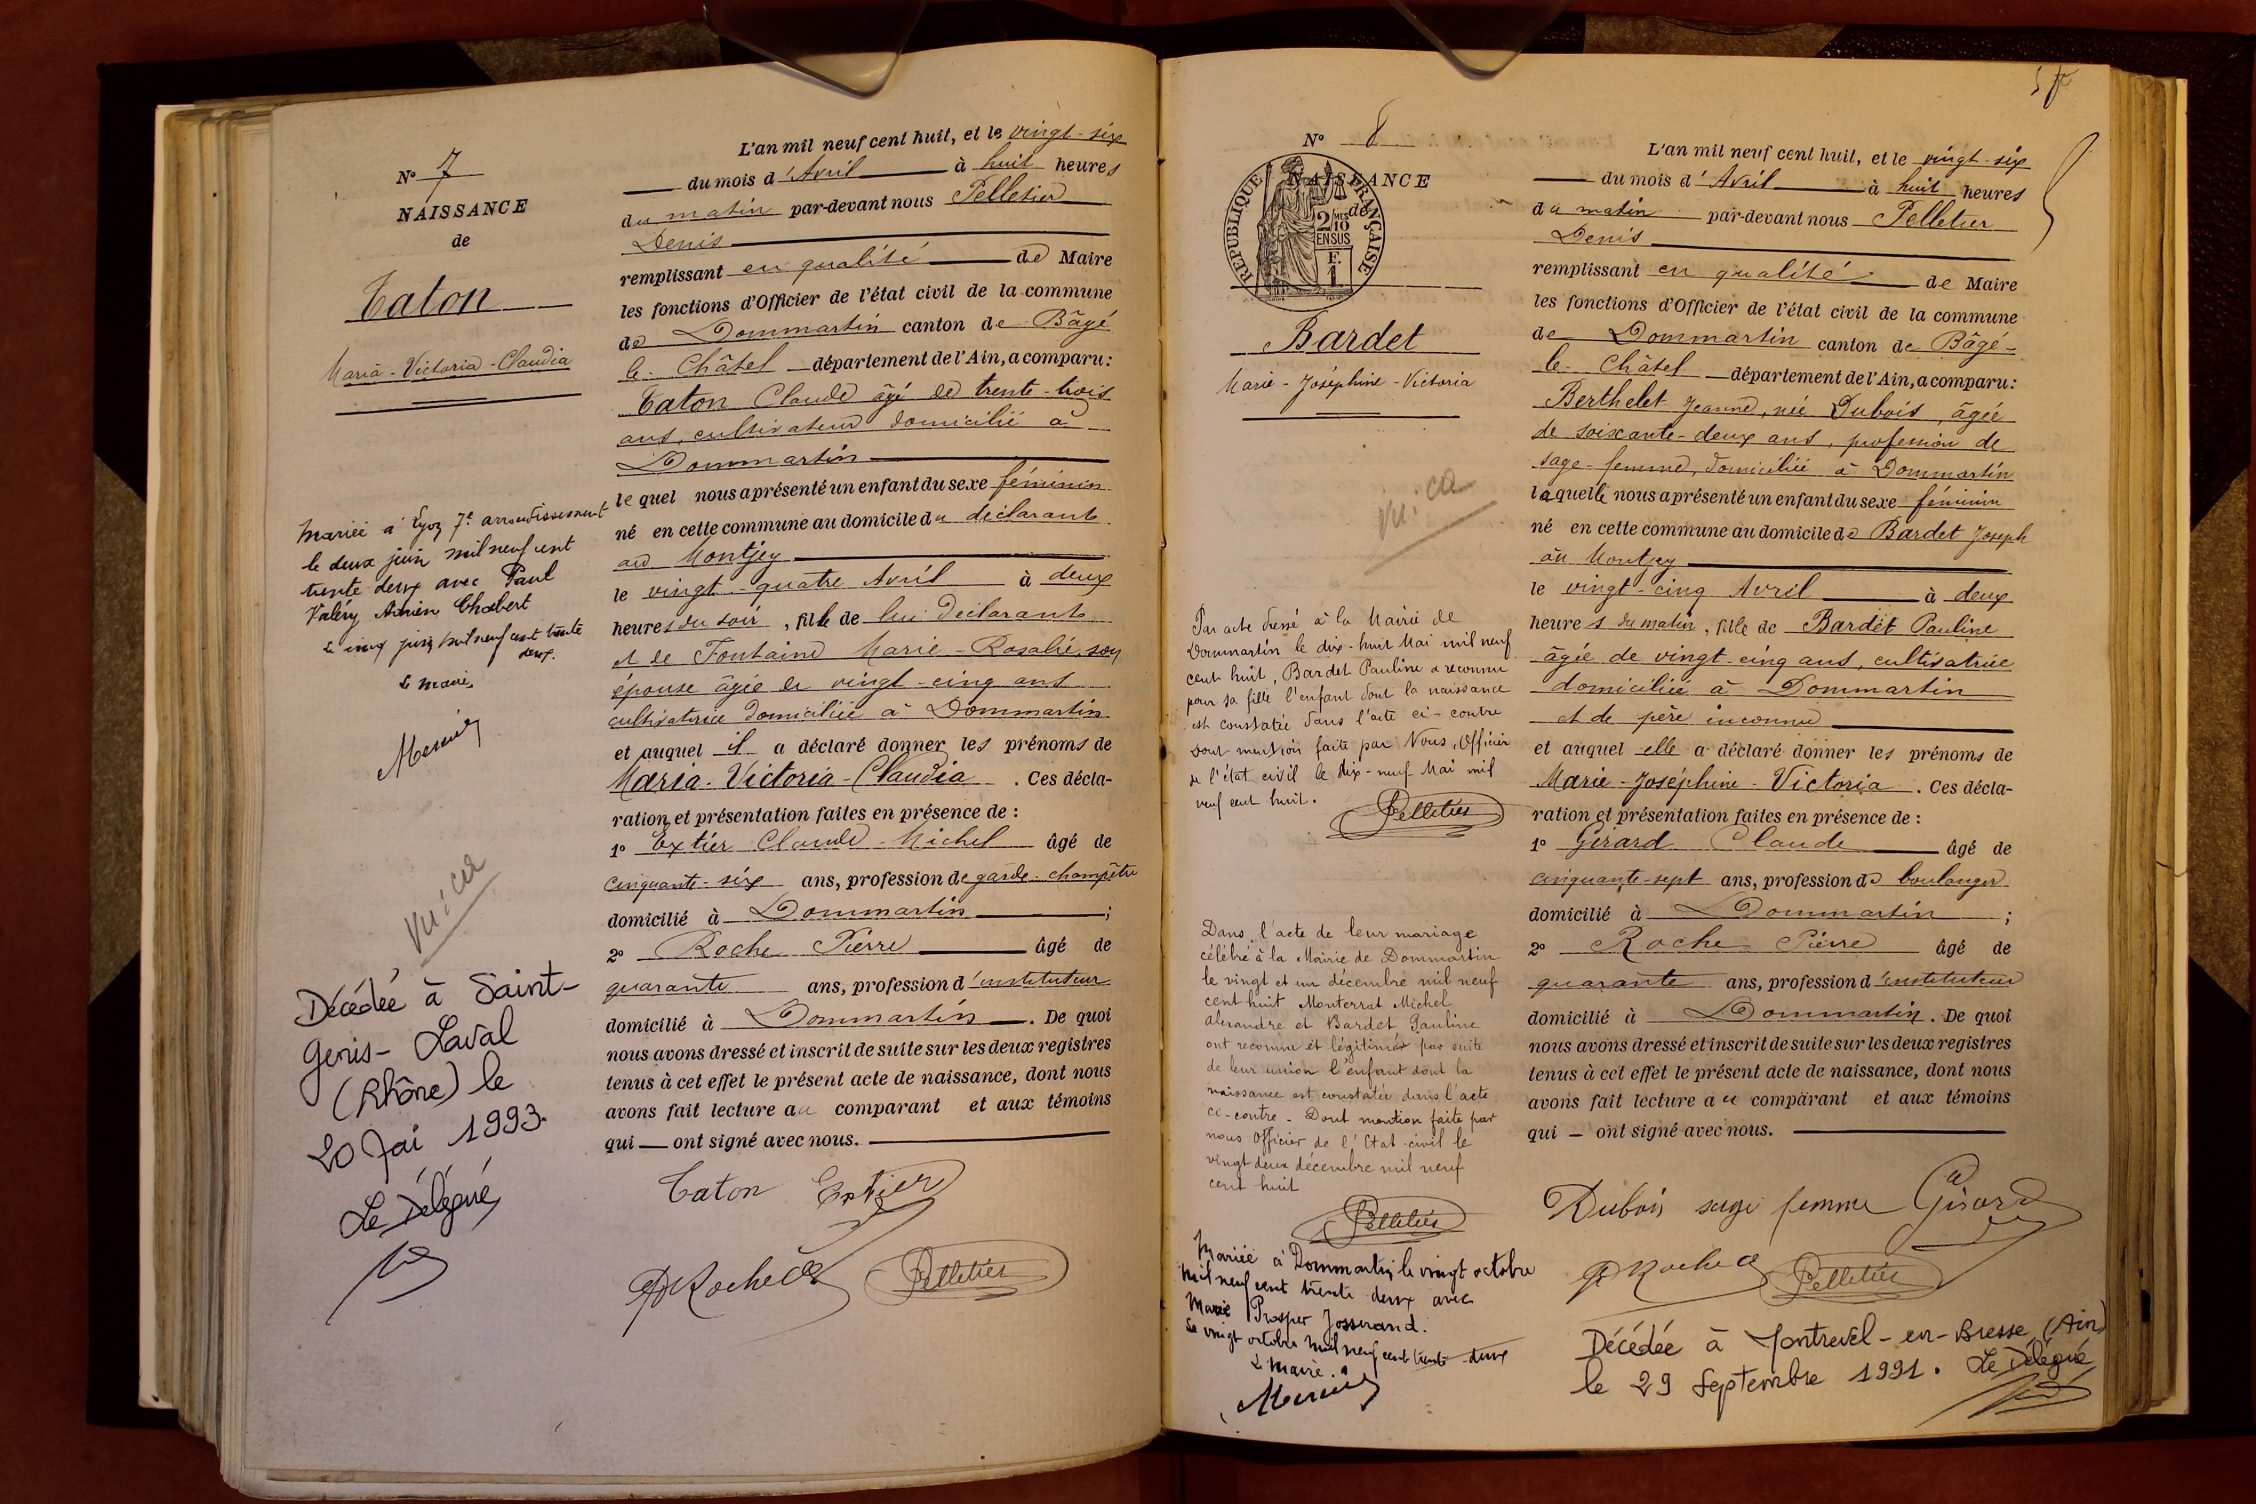 N° 7
NAISSANCE
de
Taton
Maria-Victoria-Claudia
Mariée à Lyon 7e arrondissement
le deux juin mil neuf cent
trente deux avec Paul
Valéry Adrien Chabert
Le cinq juin mil neuf cent trente
deux.
Le Maire,
vu : ca
Décédée à Saint-
Genis-Laval
(Rhône) le
20 Mai 1993.
Le Délégué
L'an mil neuf cent huit, et le vingt-six
du mois d'Avril à huit heures
du matin par-devant nous Pelletier
Denis
remplissant en qualité de Maire
les fonctions d'Officier de l'état civil de la commune
de Dommartin canton de Bâgé
le-Châtel département de l'Ain, a comparu :
Taton Claude âgé de trente-trois
ans, cultivateur domicilié à
Dommartin
lequel nous a présenté un enfant du sexe féminin
né en cette commune au domicile du déclarant
au Montjey
le vingt-quatre Avril à deux
heures du soir, fille de lui déclarant
et de Fontaine Marie-Rosalie, son
épouse âgée de vingt-cinq ans
cultivatrice domiciliée à Dommartin
et auquel il a déclaré donner les prénoms de
Maria-Victoria-Claudia. Ces décla-
ration et présentation faites en présence de :
1° Extier Claude-Michel âgé de
cinquante-six ans, profession de garde-champêtre
domicilié à Dommartin ;
2° Roche Pierre âgé de
quarante ans, profession d'instituteur
domicilié à Dommartin. De quoi
nous avons dressé et inscrit de suite sur les deux registres
tenus à cet effet le présent acte de naissance, dont nous
avons fait lecture au comparant et aux témoins
qui — ont signé avec nous.
Taton Extier
P Roche Pelletier
N° 8
NAISSANCE
de
RÉPUBLIQUE FRANÇAISE
2/10 MES
EN SUS
F.
1
Bardet
Marie-Joséphine-Victoria
vu : ca
Par acte dressé à la Mairie de
Dommartin le dix-huit Mai mil neuf
cent huit, Bardet Pauline a reconnu
pour sa fille l'enfant dont la naissance
est constatée dans l'acte ci-contre
Dont mention faite par Nous, Officier
de l'état civil le dix-neuf Mai mil
neuf cent huit.
Pelletier
Dans l'acte de leur mariage
célébré à la Mairie de Dommartin
le vingt et un décembre mil neuf
cent huit Monterrat Michel
Alexandre et Bardet Pauline
ont reconnu et légitimé par suite
de leur union l'enfant dont la
naissance est constatée dans l'acte
ci-contre. Dont mention faite par
nous Officier de l'Etat-civil le
vingt deux décembre mil neuf
cent huit
Pelletier
Mariée à Dommartin le vingt octobre
mil neuf cent trente deux avec
Marie Prosper Josserand.
Le vingt octobre mil neuf cent trente deux
Le Maire.
L'an mil neuf cent huit, et le vingt-six
du mois d'Avril à huit heures
du matin par-devant nous Pelletier
Denis
remplissant en qualité de Maire
les fonctions d'Officier de l'état civil de la commune
de Dommartin canton de Bâgé-
le-Châtel département de l'Ain, a comparu :
Berthelet Jeanne, née Dubois, âgée
de soixante-deux ans, profession de
sage-femme, domiciliée à Dommartin
laquelle nous a présenté un enfant du sexe féminin
né en cette commune au domicile de Bardet Joseph
au Montjey
le vingt-cinq Avril à deux
heures du matin, fille de Bardet Pauline
âgée de vingt-cinq ans, cultivatrice
domiciliée à Dommartin
et de père inconnu
et auquel elle a déclaré donner les prénoms de
Marie-Joséphine-Victoria. Ces décla-
ration et présentation faites en présence de :
1° Girard Claude âgé de
cinquante-sept ans, profession de boulanger
domicilié à Dommartin ;
2° Roche Pierre âgé de
quarante ans, profession d'instituteur
domicilié à Dommartin. De quoi
nous avons dressé et inscrit de suite sur les deux registres
tenus à cet effet le présent acte de naissance, dont nous
avons fait lecture au comparant et aux témoins
qui — ont signé avec nous.
Dubois sage femme Girard
P Roche Pelletier
Décédée à Montrevel-en-Bresse (Ain)
le 29 Septembre 1991. Le Délégué